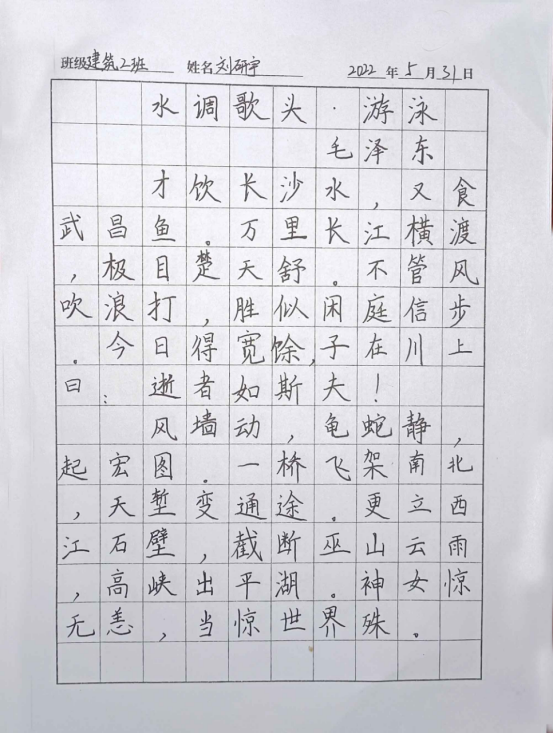 班级建筑2班 姓名刘研宇 2022年5月31日
水调歌头·游泳
毛泽东
才饮长沙水,又食
武昌鱼。万里长江横渡
,极目楚天舒。不管风
吹浪打,胜似闲庭信步
。今日得宽馀,子在川上
曰:逝者如斯夫!
风墙动,龟蛇静,
起宏图.一桥飞架南北
,天堑变通途。更立西
江石壁,截断巫山云雨
,高峡出平湖。神女惊
无恙,当惊世界殊。